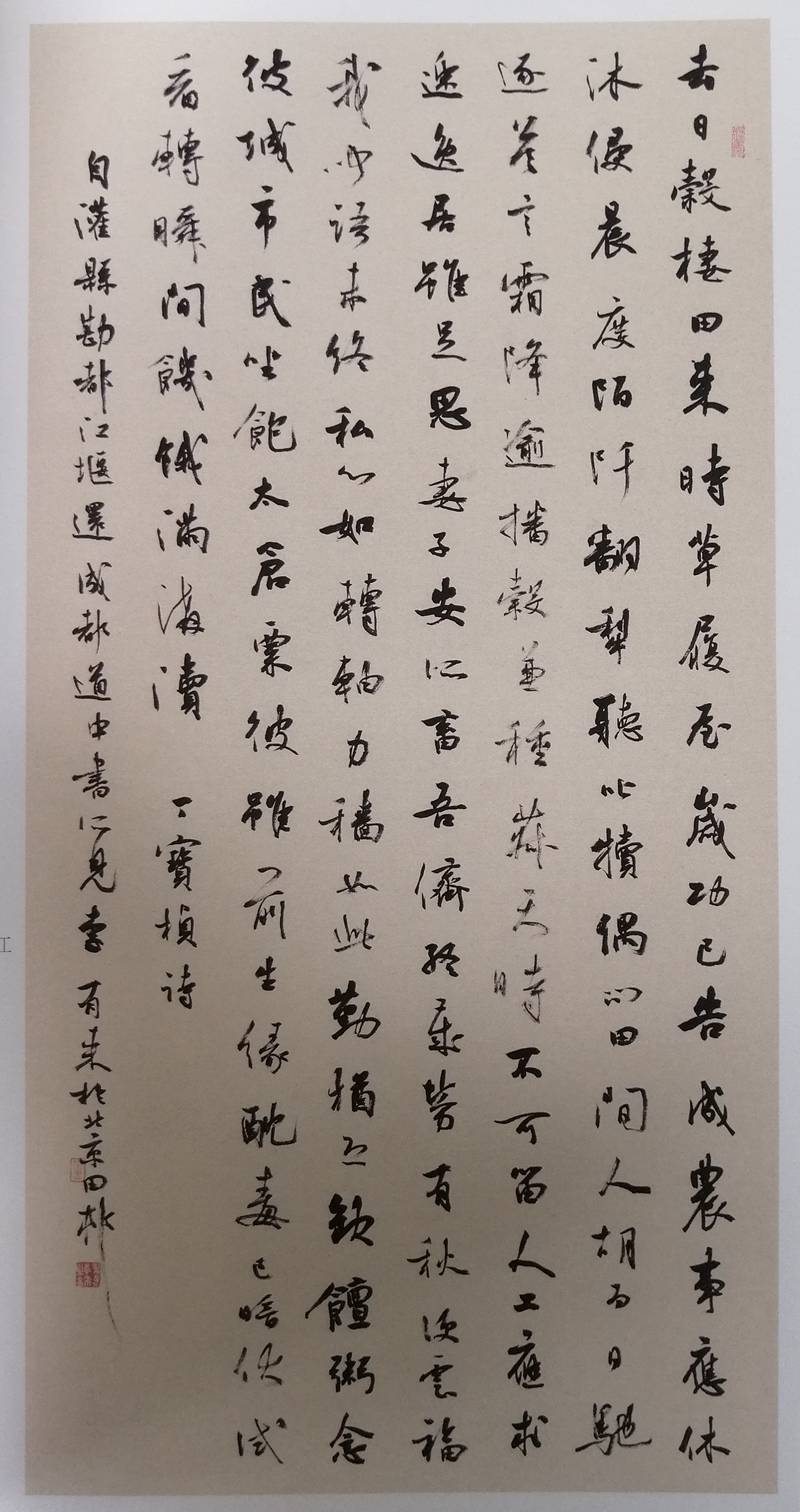 去日穀棲田来時草履屋歲功已告成農事應休
沐侵晨度陌阡翻犁聽叱犢偶田間人胡為日馳
逐答言霜降逾播穀並種菽天時不可留人工應求
速逸居雖足思妻子安所畜吾儕終歲勞有秋雲福
我語未終私心如轉軸力穡如此勤猶恐缺饘粥念
彼城市民坐飽太倉粟彼雖前生緣酖毒已暗伏試
看轉瞬間饑餓滿溝瀆 丁寶楨詩
自灌縣勘都江堰還成都道中書所見李有来於北京田邨